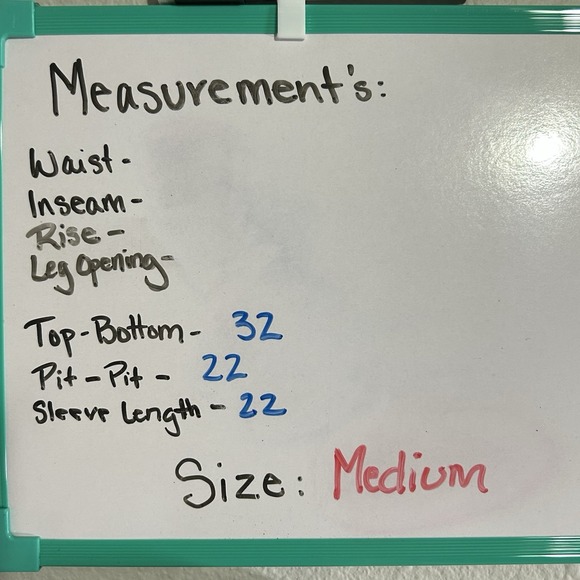 Measurement's:
Waist-
Inseam-
Rise-
Leg Opening-
Top-Bottom- 32
Pit-Pit- 22
Sleeve Length- 22
Size: Medium